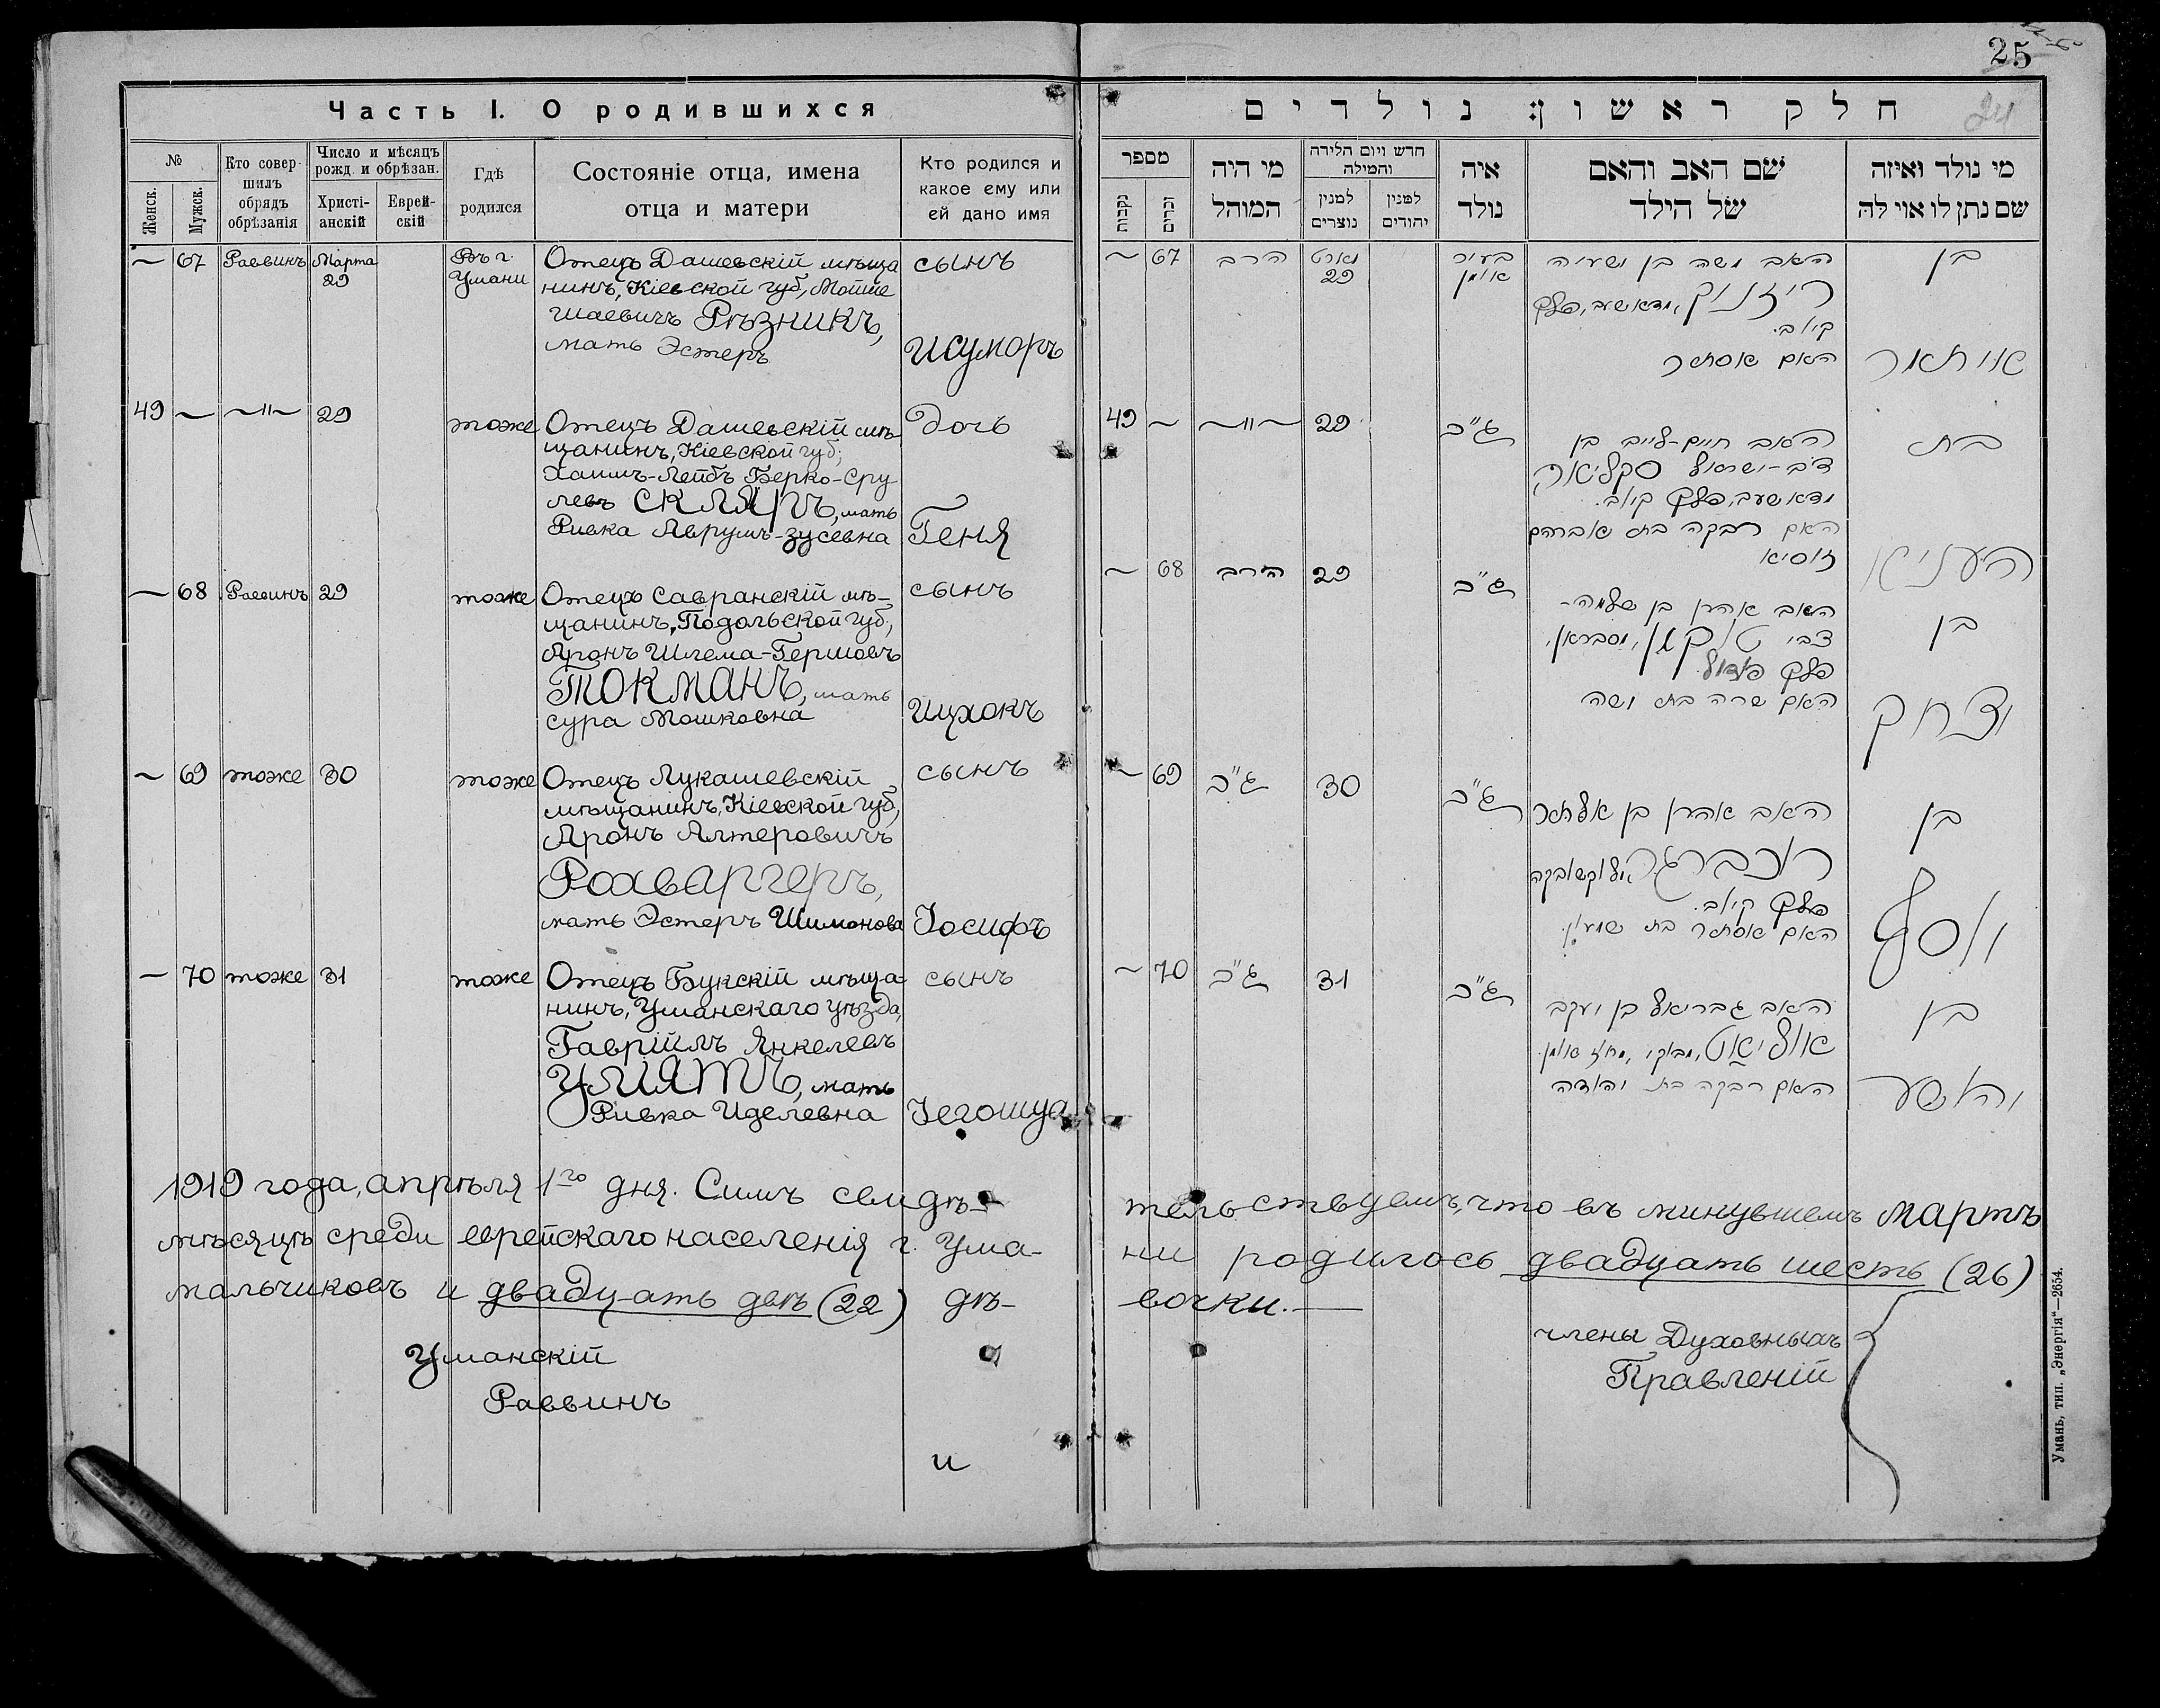 25
24
Часть I. О родившихся
№
Женск.
Мужск.
Кто совершилъ обрядъ обрѣзанія
Число и мѣсяцъ рожд. и обрѣзан.
Христіанскій
Еврейскій
Гдѣ родился
Состояніе отца, имена отца и матери
Кто родился и какое ему или ей дано имя
— 67 Раввинъ Марта 29 Въ г. Умани
Отецъ Дашевскій мѣща
нинъ, Кіевской губ., Мойше
Шаевичъ Рѣзникъ,
мать Эстеръ
сынъ
49 — —"— 29 тоже
Отецъ Дашевскій мѣ-
щанинъ, Кіевской губ.,
Хаимъ-Лейбъ Берко-Сру
левъ Скляръ, мать
Ривка Аврумъ-Зусевна
дочь
Геня
— 68 Раввинъ 29 тоже
Отецъ Савранскій мѣ-
щанинъ, Подольской губ.,
Аронъ Шлема-Гершовъ
Токманъ, мать
Сура Мошковна
сынъ
Ицхокъ
— 69 тоже 30 тоже
Отецъ Лукашевскій
мѣщанинъ, Кіевской губ,
Аронъ Алтеровичъ
Рохваргеръ,
мать Эстеръ Шимонова
сынъ
Іосифъ
— 70 тоже 31 тоже
Отецъ Букскій мѣща-
нинъ, Уманскаго уѣзда,
Гавріилъ Янкелевъ
Улиятъ, мать
Ривка Иделевна
сынъ
Іегошуа
חלק ראשון: נולדים
מספר
נקבות
זכרים
מי היה המוהל
חדש ויום הלידה והמילה
למנין נוצרים
למנין יהודים
איה נולד
שם האב והאם של הילד
מי נולד ואיזה שם נתן לו או לה
— 67 הרב מארט 29 בעיר אומן
האב משה בן ישעיה
רזניק, מדאשעב, פלך
קיוב.
האם אסתר
בן
איתמר
49 — —"— 29 ג"כ
האב חיים-לייב בן
דב-ישראל סקליאר
מדאשעב, פלך קיוב.
האם רבקה בת אברהם
זוסיא
בת
העניא
— 68 הרב 29 ג"כ
האב אהרן בן שלמה-
צבי טוקמן, מסבראן,
פלך פאדול.
האם שרה בת משה
בן
יצחק
— 69 ג"כ 30 ג"כ
האב אהרן בן אלתר
רוכברגר, מלוקשובקה
פלך קיוב.
האם אסתר בת שמעון.
בן
יוסף
— 70 ג"כ 31 ג"כ
האב גבריאל בן יעקב
אוליאט, מבוקי, מחוז אומן.
האם רבקה בת יהודה
בן
יהושע
1919 года, апрѣля 1го дня. Симъ свидѣ-тельствуемъ, что въ минувшемъ мартѣ
мѣсяцѣ среди еврейскаго населенія г. Ума-ни родилось двадцать шесть (26)
мальчиковъ и двадцать двѣ (22) дѣ-вочки.—
Уманскій
Раввинъ
и
члены Духовныхъ
Правленій
Умань, тип. „Энергія“—2654.